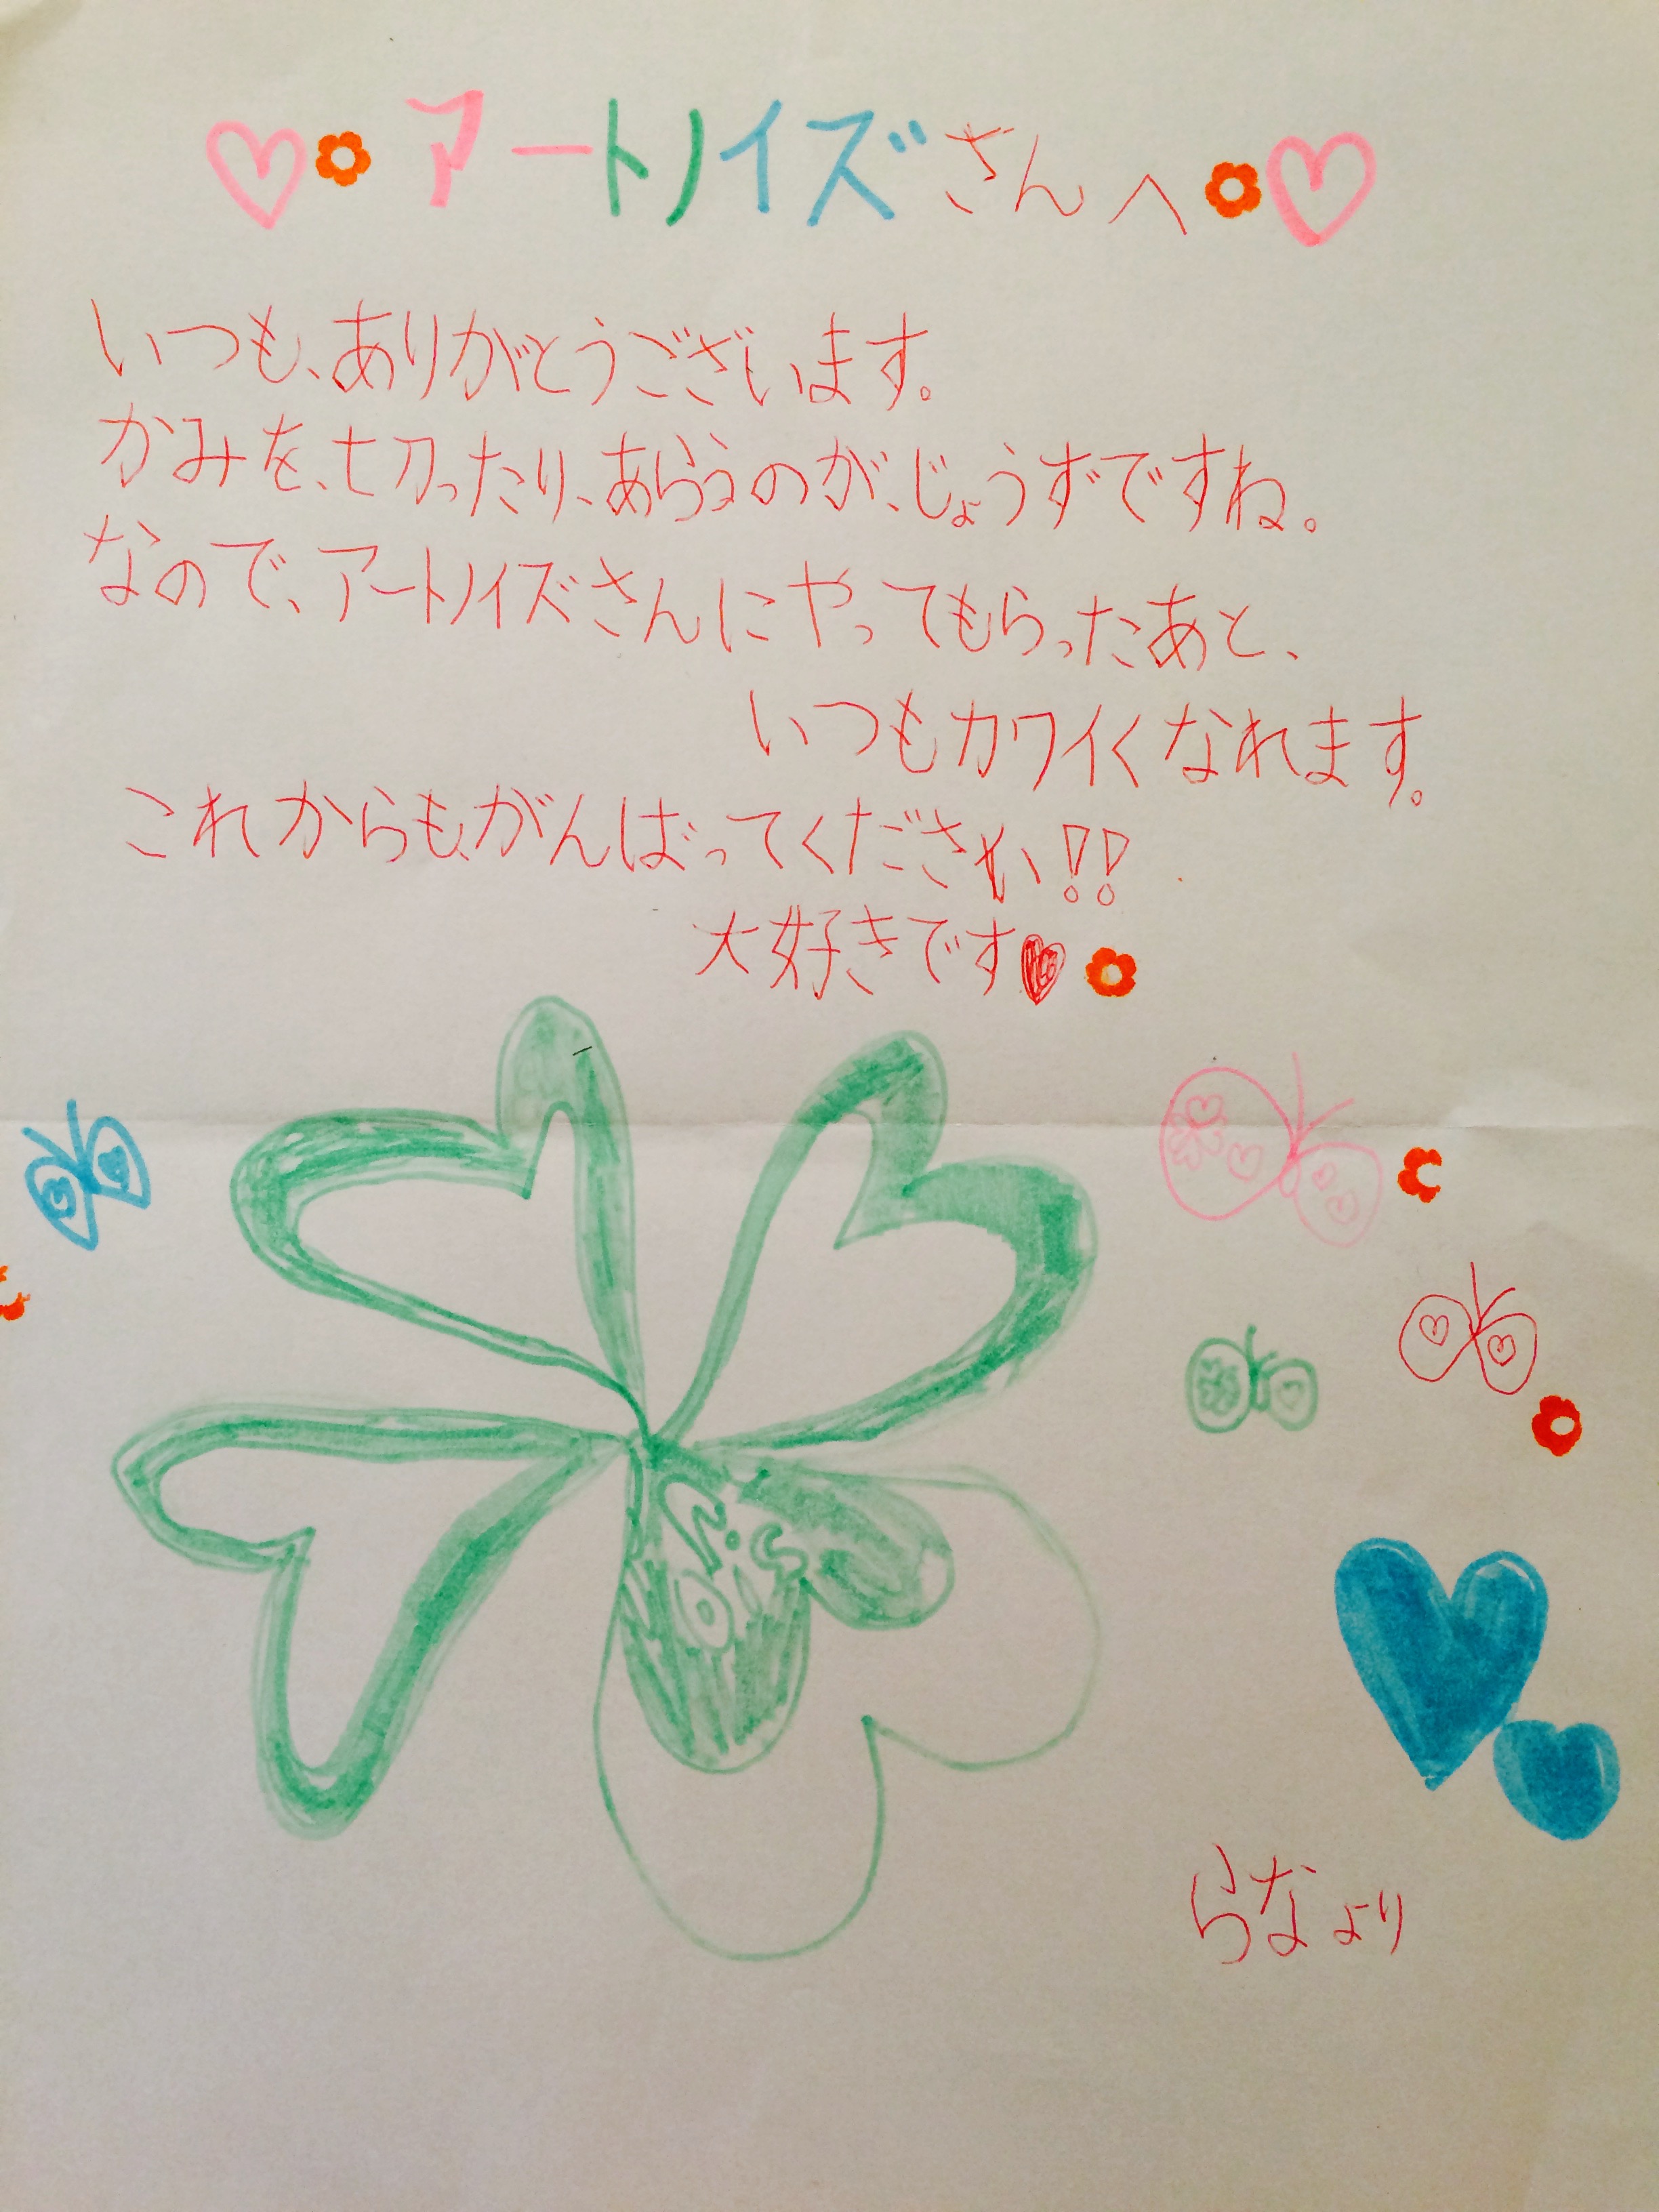 アートノイズさんへ
いつも、ありがとうございます。
かみを、切ったり、あらうのが、じょうずですね。
なので、アートノイズさんにやってもらったあと、
いつもカワイくなれます。
これからも、がんばってください!!
大好きです
らなより